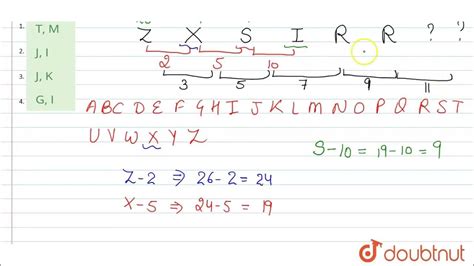 1. T, M
Z X S I R R ? ?
2. J, I
2 5 10
3. J, K
3 5 7 9 11
4. G, I
A B C D E F G H I J K L M N O P Q R S T
U V W X Y Z
S-10 = 19-10 = 9
Z-2 ⇒ 26-2 = 24
X-5 ⇒ 24-5 = 19
doubtnut